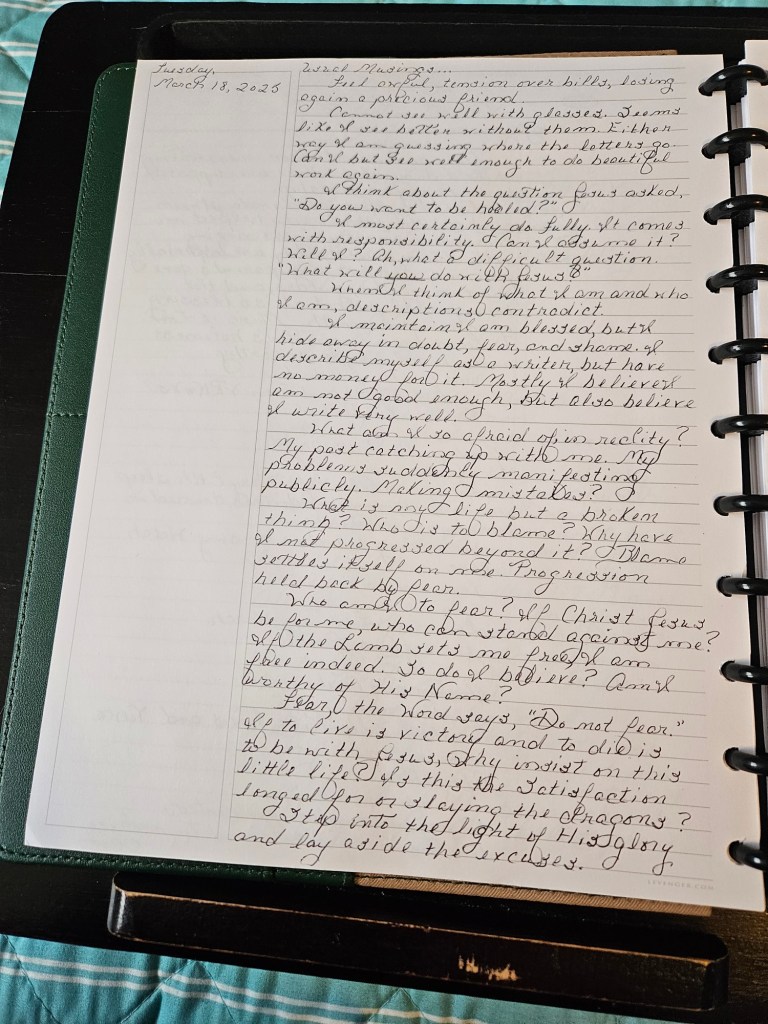 Tuesday,
March 18, 2025
Usual Musings...
Feel awful, tension over bills, losing
again a precious friend.
Cannot see well with glasses. Seems
like I see better without them. Either
way I am guessing where the letters go.
Can I but see well enough to do beautiful
work again.
I think about the question Jesus asked,
"Do you want to be healed?"
I most certainly do fully. It comes
with responsibility. Can I assume it?
Will I? Ah, what a difficult question.
"What will you do with Jesus?"
When I think of what I am and who
I am, descriptions contradict.
I maintain I am blessed, but I
hide away in doubt, fear, and shame. I
describe myself as a writer, but have
no money for it. Mostly I believe I
am not good enough, but also believe
I write very well.
What am I so afraid of in reality?
My past catching up with me. My
problems suddenly manifesting
publicly. Making mistakes?
What is my life but a broken
thing? Who is to blame? Why have
I not progressed beyond it? Blame
settles itself on me. Progression
held back by fear.
Who am I to fear? If Christ Jesus
be for me, who can stand against me?
If the Lamb sets me free, I am
free indeed. So do I believe? Am I
worthy of His Name?
Fear, the Word says, "Do not fear."
If to live is victory and to die is
to be with Jesus, why insist on this
little life? Is this the satisfaction
longed for or slaying the dragons?
Step into the light of His glory
and lay aside the excuses.
LEVENGER.COM